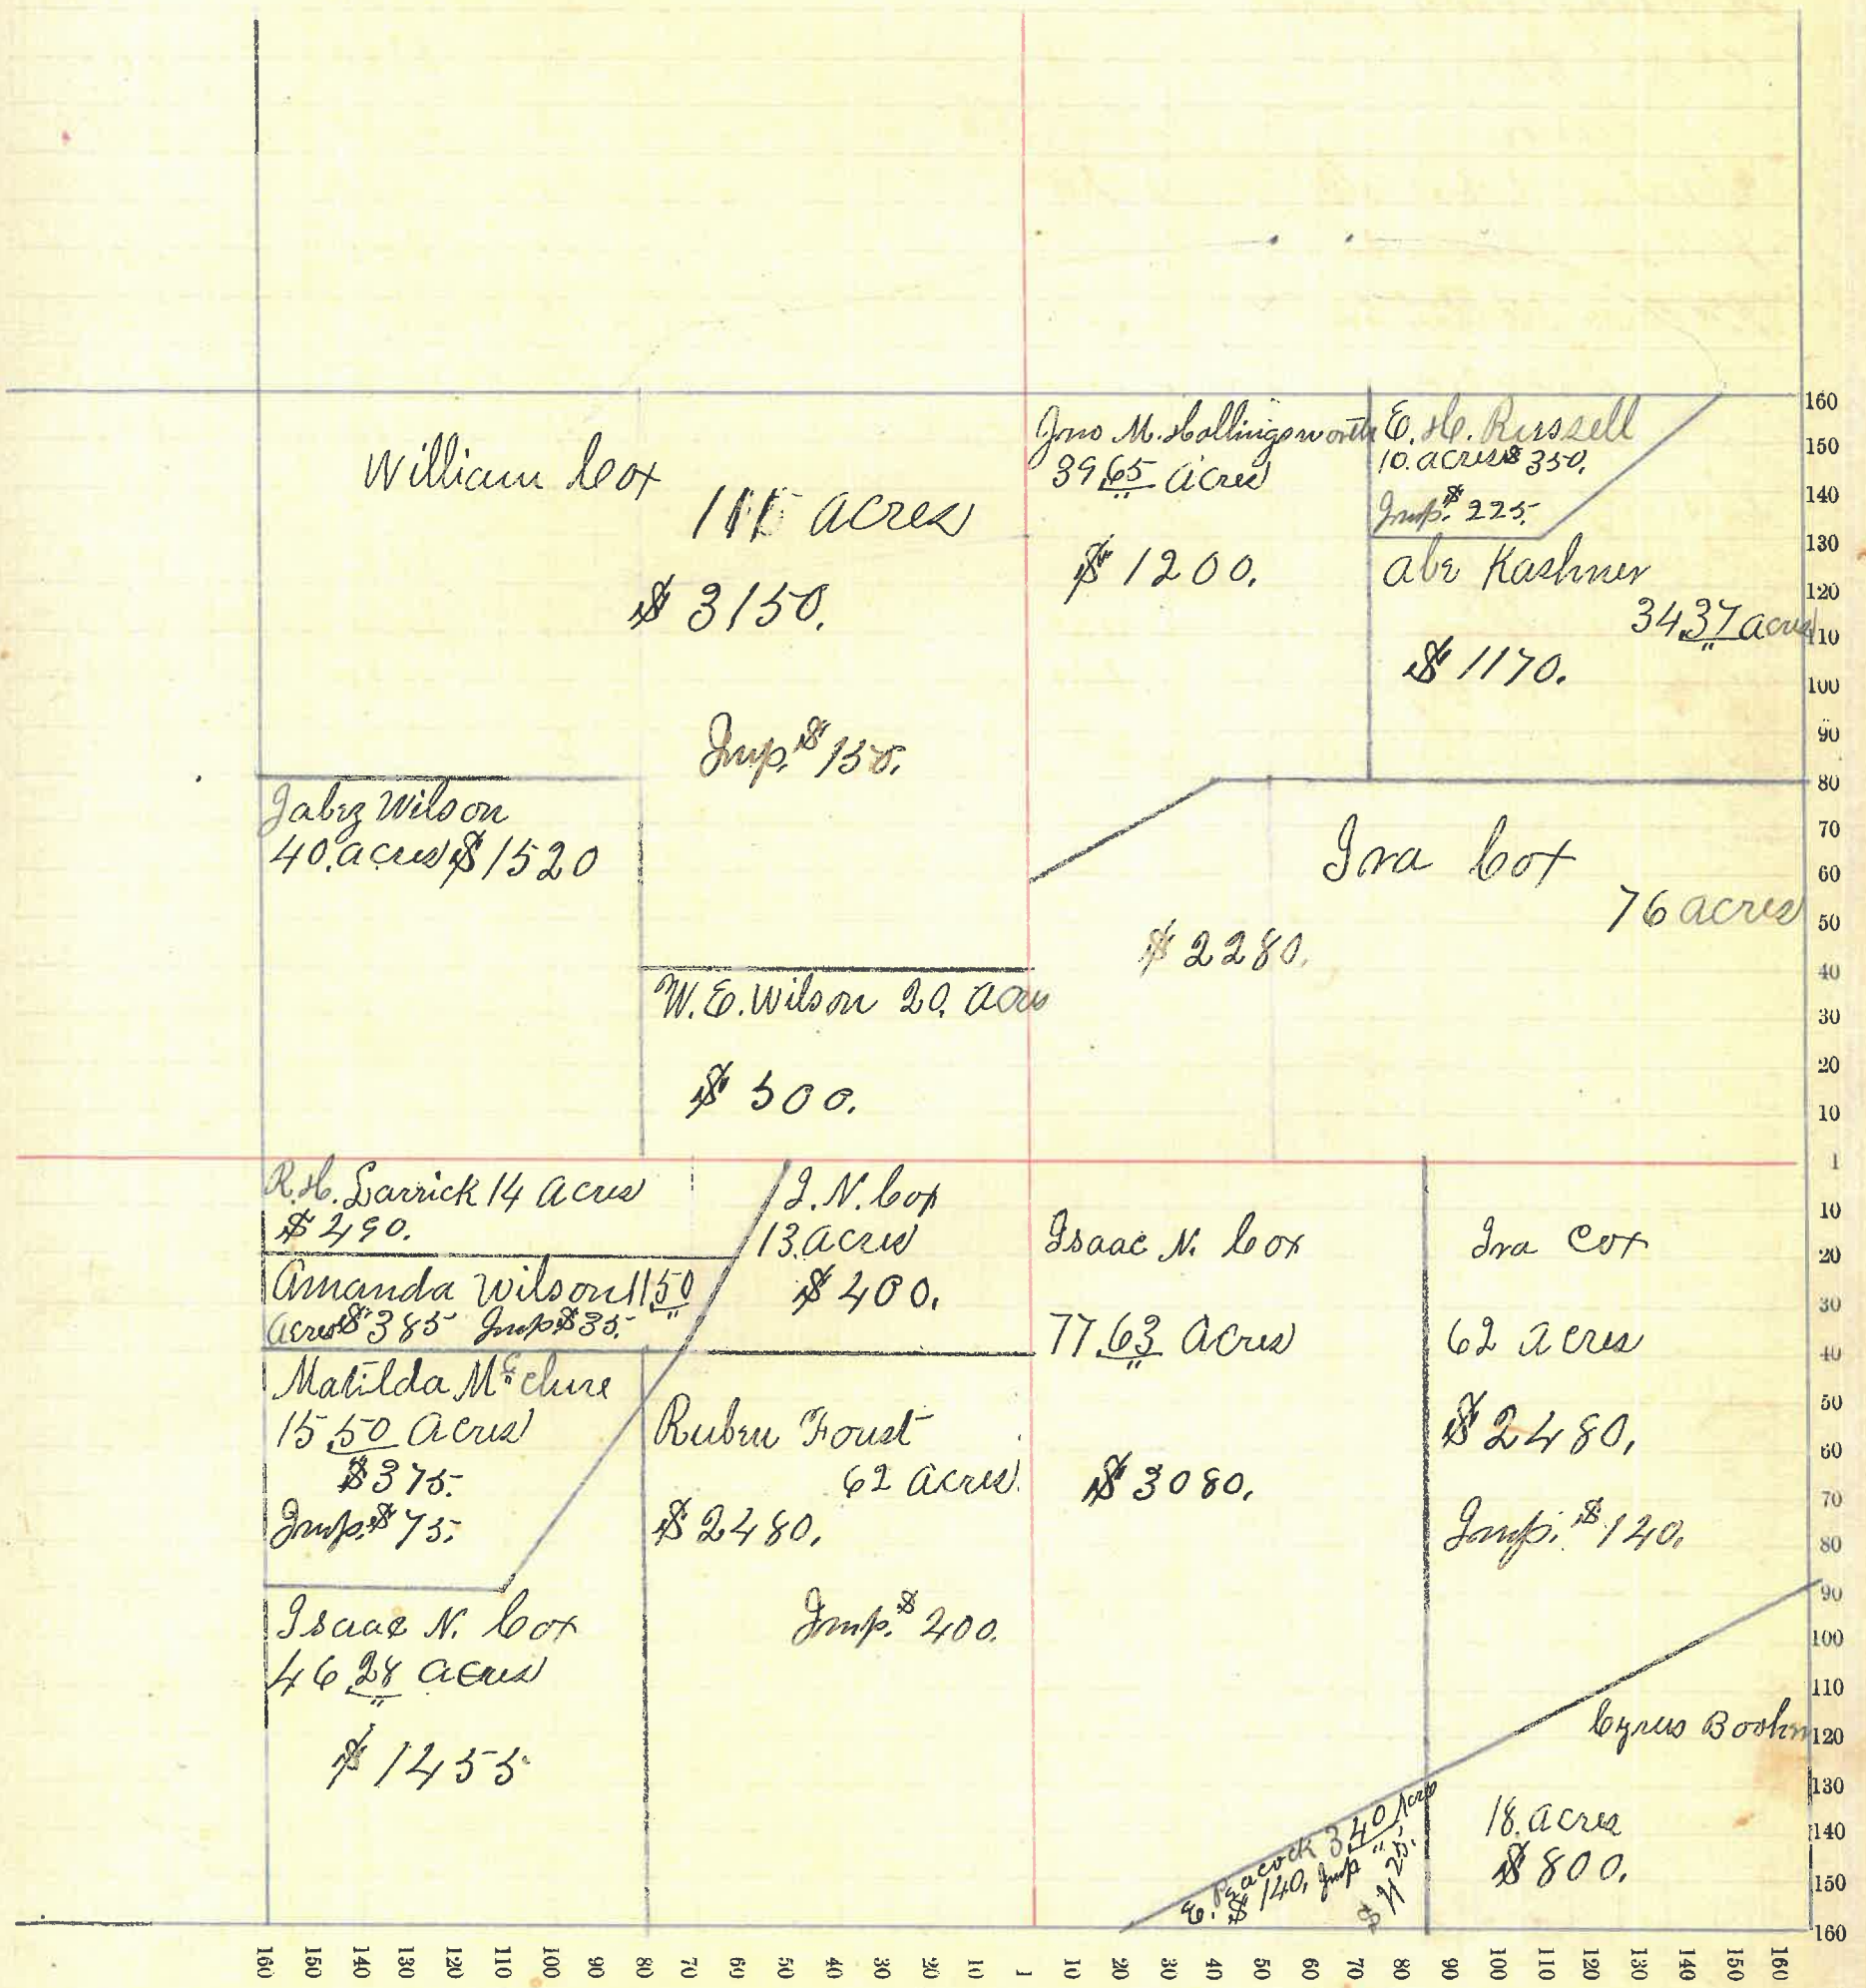 William Cox
acres
$ 3150.
Imp. $ 150.
Jno M. Hollingsworth
39 65 Acres
$ 1200.
E. H. Russell
10. acres $ 350.
Imp. $ 225.
Abe Kashner
34.37 acres
$ 1170.
Jabez Wilson
40. acres $ 1520
W. E. Wilson 20. acres
$ 500.
Ira Cox
76 acres
$ 2280.
R. H. Larrick 14 Acres
$ 490.
Amanda Wilson 11 50
Acres $ 385 Imp $ 35.
I. N. Cox
13. acres
$ 400.
Matilda McClure
15 50 Acres
$ 375.
Imp. $ 75.
Ruben Foust
62 acres.
$ 2480.
Imp. $ 200.
Isaac N. Cox
46 28 acres
$ 1455
Isaac N. Cox
77.63 Acres
$ 3080.
Ira Cox
62 Acres
$ 2480.
Imp. $ 120.
Cyrus
18. acres
$ 800.
E. Peacock 3 40 Acres
$ 140. Imp
160
150
140
130
120
110
100
90
80
70
60
50
40
30
20
10
1
10
20
30
40
50
60
70
80
90
100
110
120
130
140
150
160
160 150 140 130 120 110 100 90 80 70 60 50 40 30 20 10 1 10 20 30 40 50 60 70 80 90 100 110 120 130 140 150 160